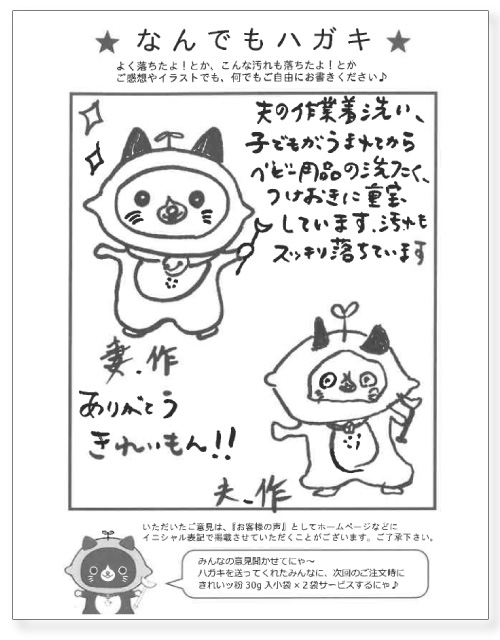 ★ なんでもハガキ ★
よく落ちたよ！とか、こんな汚れも落ちたよ！とか
ご感想やイラストでも、何でもご自由にお書きください♪
夫の作業着洗い、
子どもがうまれてから
ベビー用品の洗たく、
つけおきに重宝
しています。汚れも
スッキリ落ちています
妻.作
ありがとう
きれいもん!!
夫.作
いただいたご意見は、『お客様の声』としてホームページなどに
イニシャル表記で掲載させていただくことがございます。ご了承下さい。
みんなの意見聞かせてにゃ〜
ハガキを送ってくれたみんなに、次回のご注文時に
きれいッ粉 30g 入小袋×２袋サービスするにゃ♪